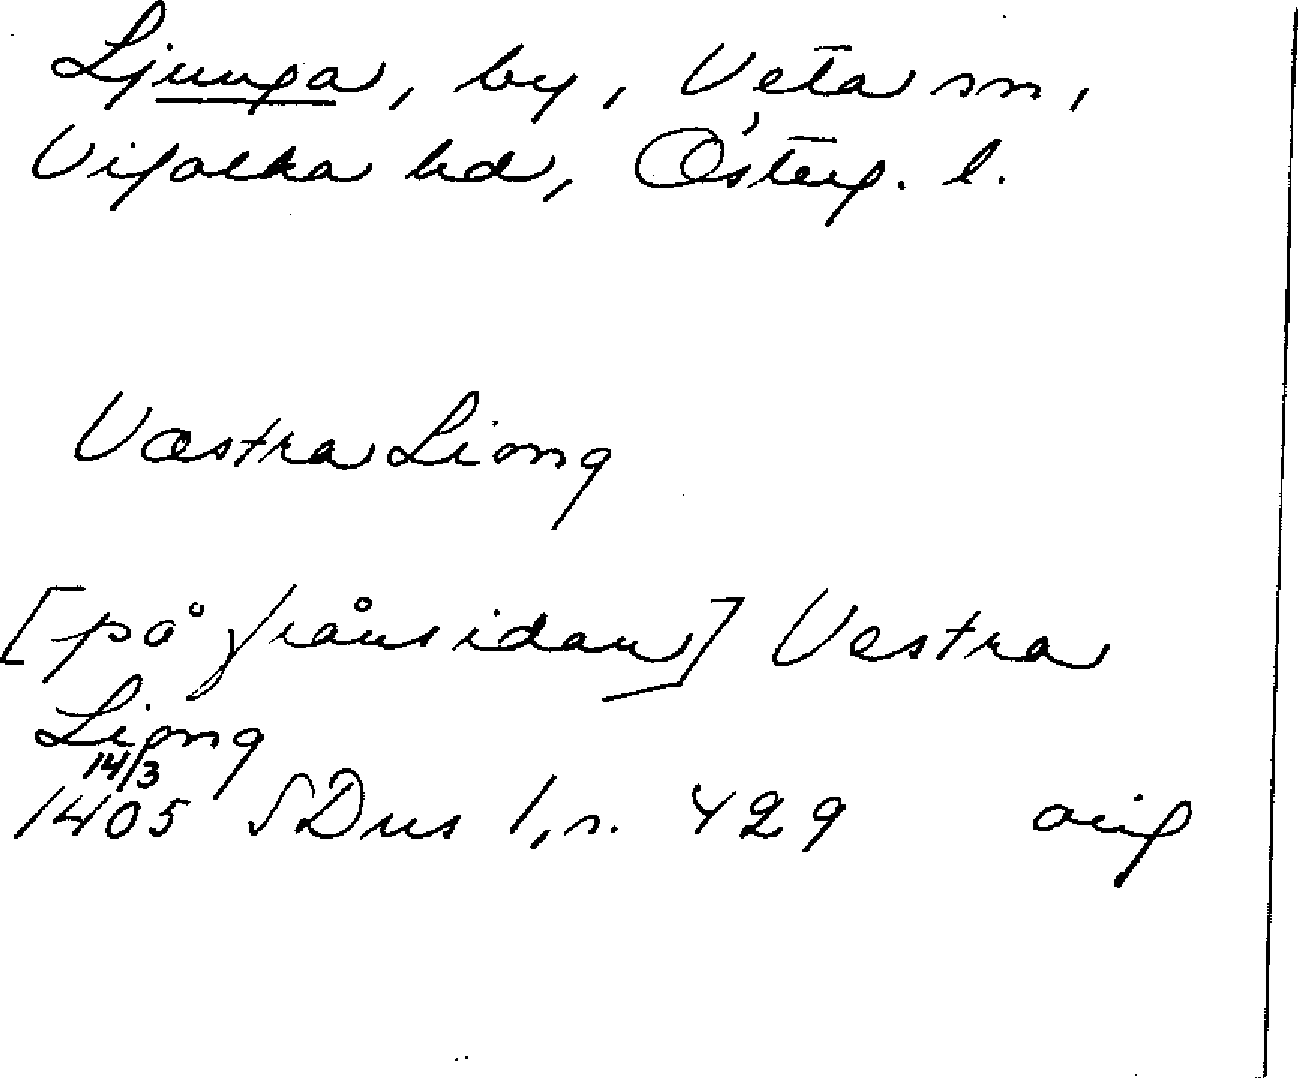 Ljunga, by, Veta sn,
Vifolka hd, Österg. l.
Væstra Liong
[på frånsidan] Vestra
Liong
14/3
1405 SDns 1, s. 429 orig